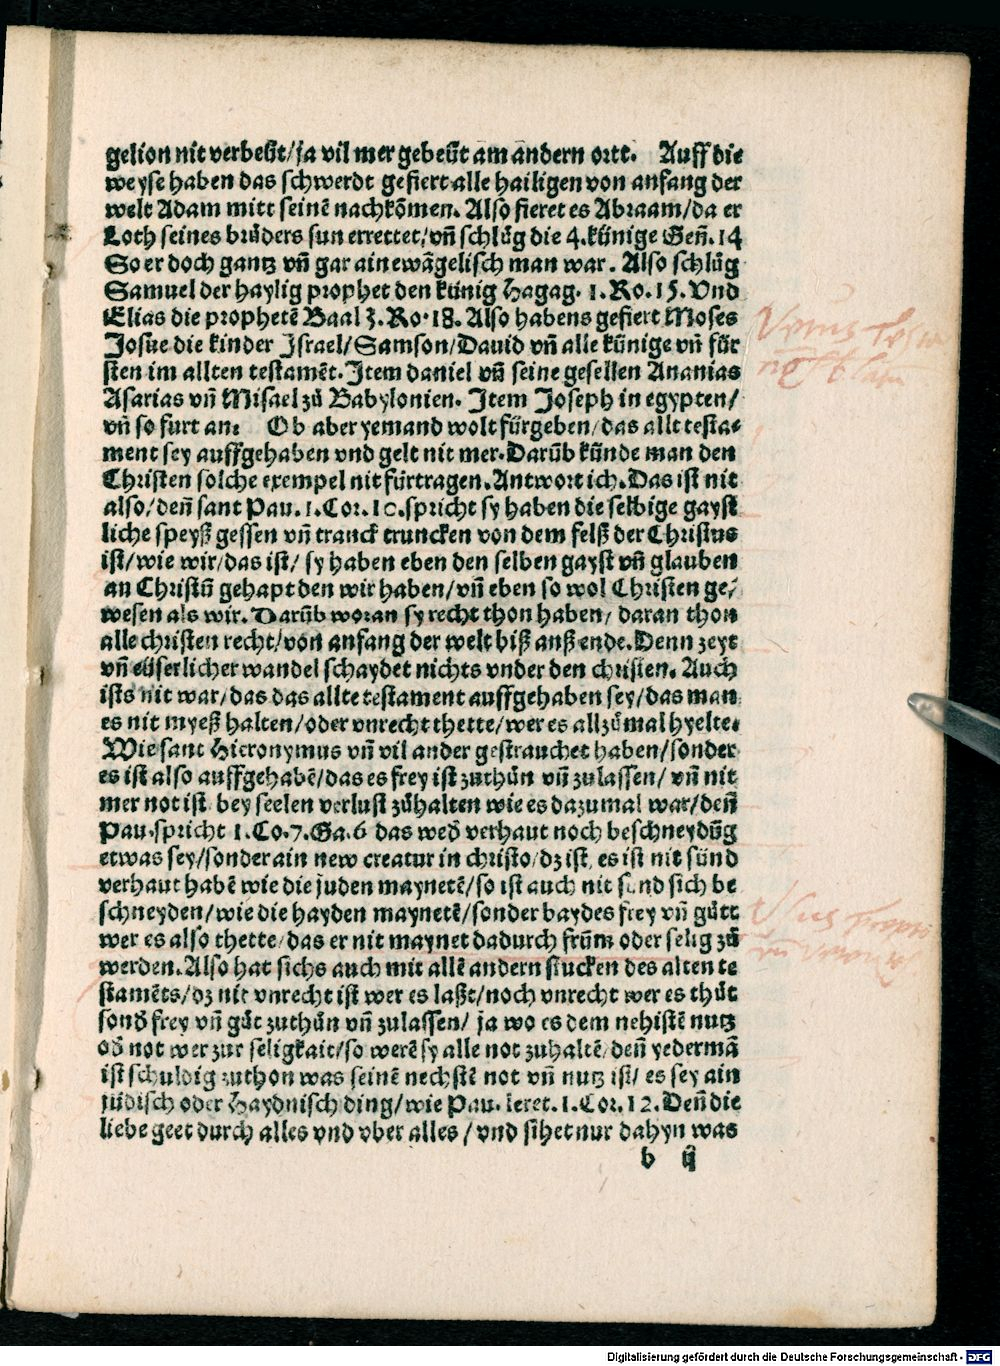 gelion nit verbeüt/ja vil mer gebeüt am andern ortt. Auff die
weyse haben das schwerdt gefiert alle hailigen von anfang der
welt Adam mitt seinē nachkōmen. Also fieret es Abraam/da er
Loth seines brůders sun errettet/vñ schlůg die 4.künige Geñ.14
So er doch gantz vñ gar ain ewāgelisch man war. Also schlůg
Samuel der haylig prophet den künig Hagag. 1.Ro.15. Vnd
Elias die prophetē Baal 3.Ro.18. Also habens gefiert Moses
Josue die kinder Israel/Samson/Dauid vñ alle künige vñ für
sten im allten testamēt. Item daniel vñ seine gesellen Ananias
Asarias vñ Misael zů Babylonien. Item Joseph in egypten/
vñ so furt an: Ob aber yemand wolt fürgeben/das allt testa⸗
ment sey auffgehaben vnd gelt nit mer. Darūb künde man den
Christen solche exempel nit fürtragen. Antwort ich. Das ist nit
also/deñ sant Pau. 1.Cor.10.spricht sy haben die selbige gayst
liche speyß gessen vñ tranck truncken von dem felß der Christus
ist/wie wir/das ist/ sy haben eben den selben gayst vñ glauben
an Christū gehapt den wir haben/vñ eben so wol Christen ge⸗
wesen als wir. Darūb woran sy recht thon haben/ daran thon
alle christen recht/von anfang der welt biß anß ende. Denn zeyt
vñ eüserlicher wandel schaydet nichts vnder den christen. Auch
ists nit war/das das allte testament auffgehaben sey/das man
es nit myeß halten/oder vnrecht thette/wer es allzůmal hyelte.
Wie sant Hieronymus vñ vil ander gestrauchet haben/sonder
es ist also auffgehabē/das es frey ist zuthůn vñ zulassen/ vñ nit
mer not ist bey seelen verlust zůhalten wie es dazumal war/deñ
Pau.spricht 1.Co.7.Ga.6 das wed̄ verhaut noch beschneydūg
etwas sey/sonder ain new creatur in christo/dz ist es ist nit sünd
verhaut habē wie die juden maynetē/so ist auch nit sünd sich be
schneyden/wie die hayden maynetē/sonder baydes frey vñ gůtt
wer es also thette/das er nit maynet dadurch frūm oder selig zů
werden. Also hat sichs auch mit allē andern stucken des alten te
stamēts/dz nit vnrecht ist wer es laßt/noch vnrecht wer es thůt
sond̄ frey vñ gůt zuthůn vñ zulassen/ ja wo es dem nehistē nutz
od̄ not wer zur seligkait/so werē sy alle not zuhaltē/deñ yedermā
ist schuldig zuthon was seinē nechstē not vñ nutz ist/ es sey ain
jüdisch oder Haydnisch ding/wie Pau. leret. 1.Cor.12. Deñ die
liebe geet durch alles vnd vber alles/ vnd sihet nur dahyn was
b ij
Digitalisierung gefördert durch die Deutsche Forschungsgemeinschaft - DFG